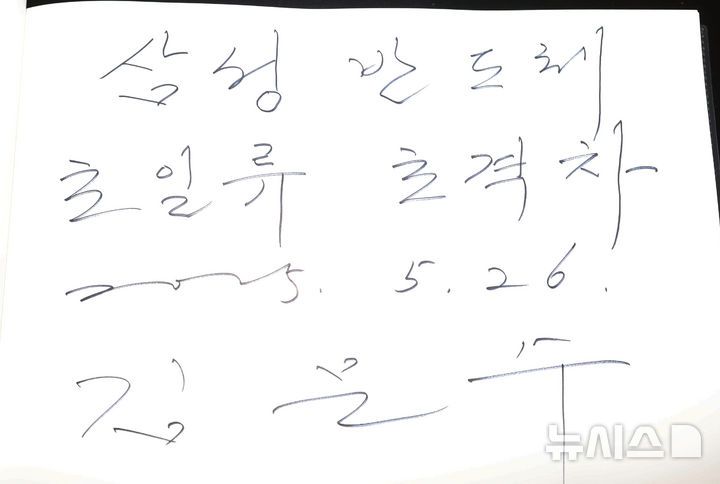 삼성 반도체
초일류 초격차
2025. 5. 26.
김문수
뉴시스